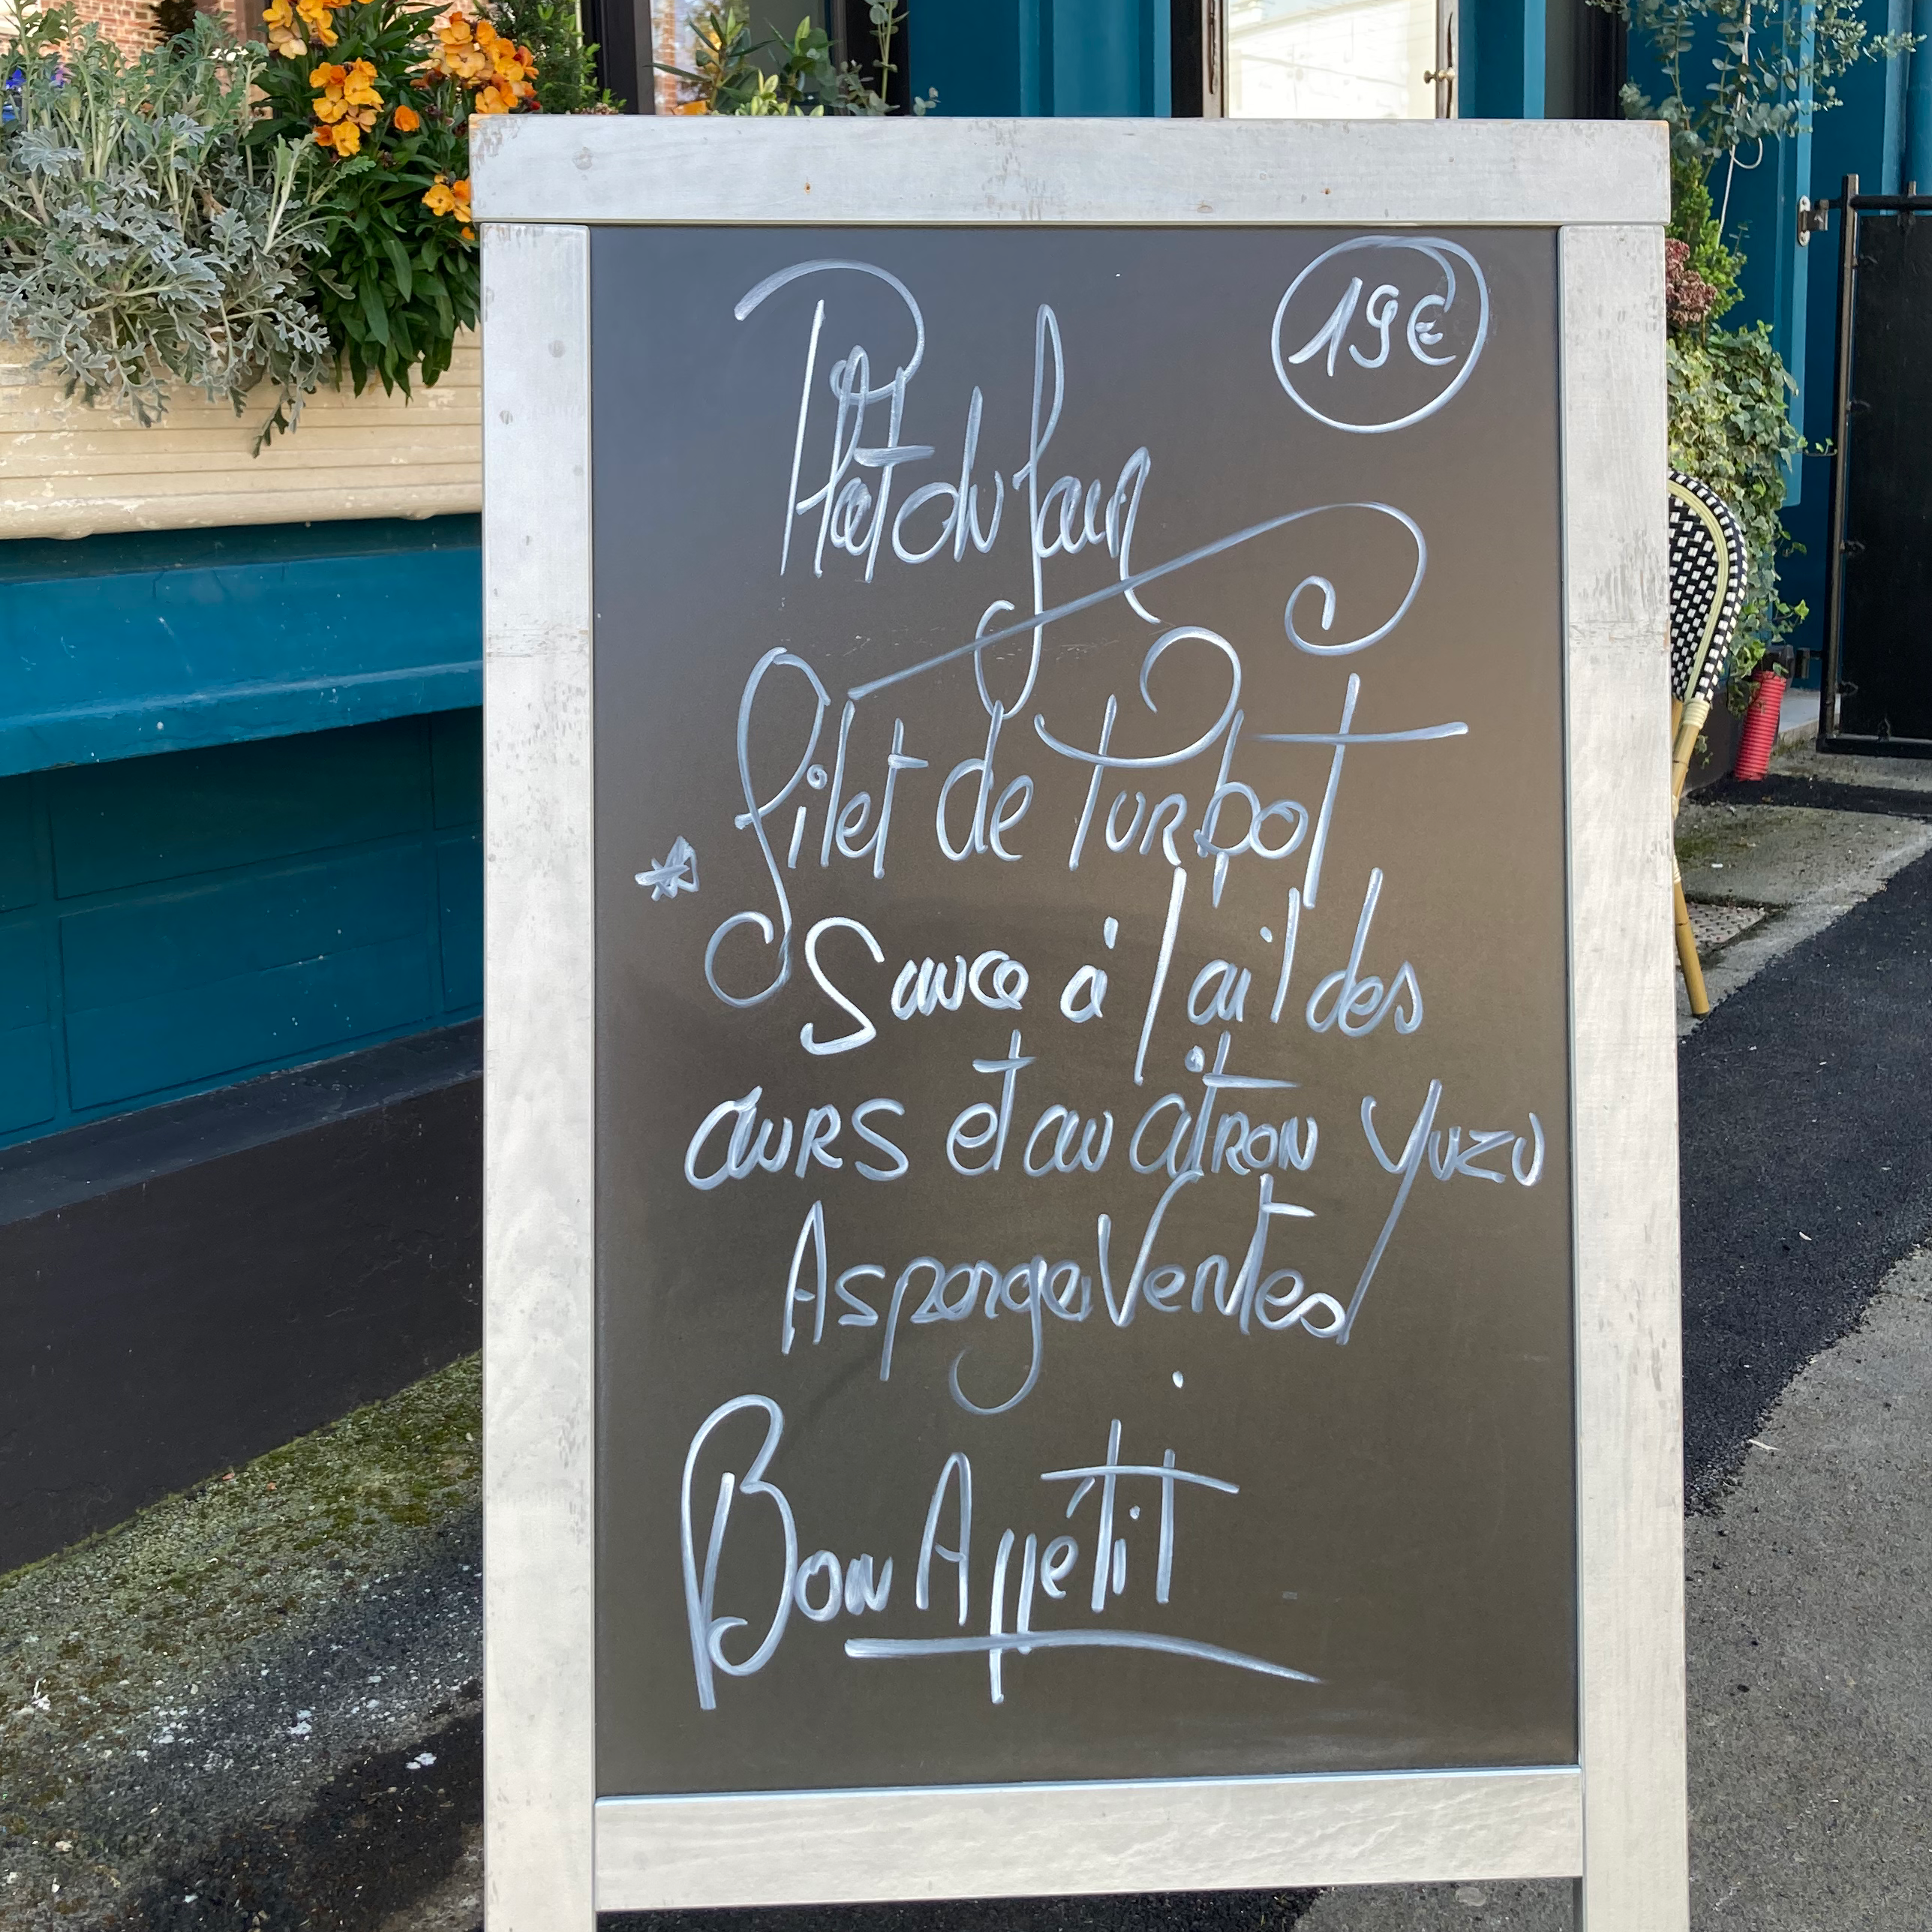 Plat du Jour
19€
Filet de Turbot
* Sauce à l'ail des
ours et au citron Yuzu
Asperges Vertes
Bon Appétit